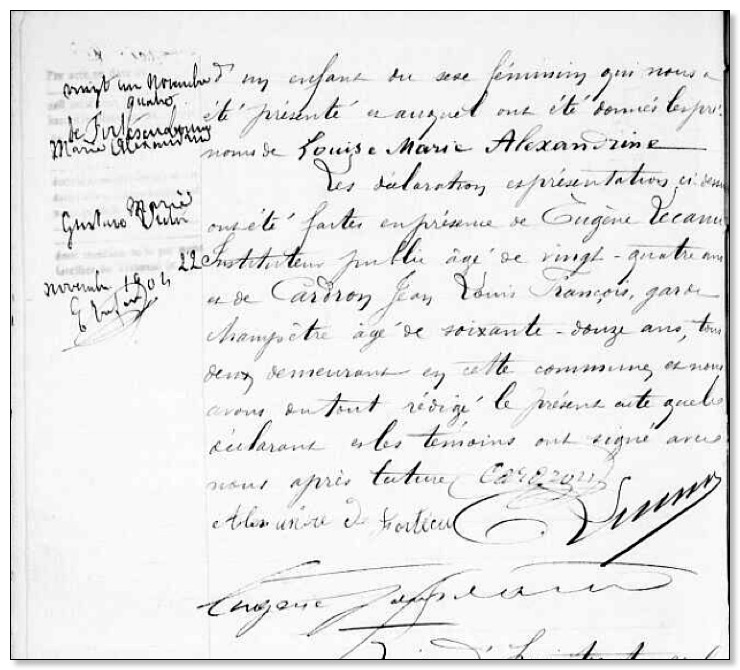 vingt un Novembre
quatre
de Fortescu
Marie Alexandrine
Marié
Gustave Victor
22
novembre 1904
d'un enfant du sexe féminin qui nous a
été présenté et auquel ont été donnés les pré-
noms de Louise Marie Alexandrine
Les déclaration et présentation ci-dessus
ont été faites en présence de Eugène Lecanu
Instituteur public âgé de vingt-quatre ans
et de Cardron Jean Louis François, garde
champêtre âgé de soixante-douze ans, tous
deux demeurant en cette commune, et nous
avons du tout rédigé le présent acte que les
déclarant et les témoins ont signé avec
nous après lecture Cardron
Alexandre de Fortescu
Eugène